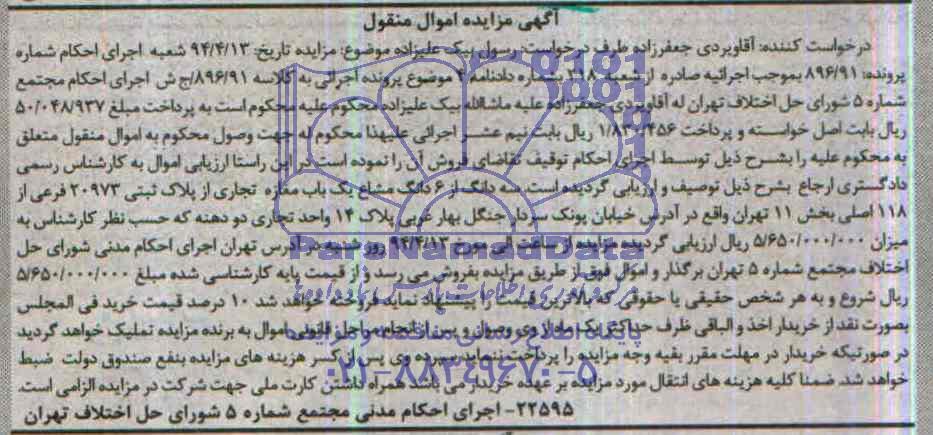 آگهی مزایده اموال منقول
درخواست کننده: آقاویردی جعفرزاده طرف درخواست: رسول بیک علیزاده موضوع: مزایده تاریخ: ۹۴/۴/۱۳ شعبه اجرای احکام شماره
پرونده: ۸۹۶/۹۱ بموجب اجرائیه صادره از شعبه ۲۱۸ بشماره دادنامه ۴ موضوع پرونده اجرائی به کلاسه ۸۹۶/۹۱/ج ش اجرای احکام مجتمع
شماره ۵ شورای حل اختلاف تهران له آقاویردی جعفرزاده علیه ماشاالله بیک علیزاده محکوم علیه محکوم است به پرداخت مبلغ ۵۰/۰۴۸/۹۳۷
ریال بابت اصل خواسته و پرداخت ۱/۸۳۰/۴۵۶ ریال بابت نیم عشر اجرائی علیهذا محکوم له جهت وصول محکوم به اموال منقول متعلق
به محکوم علیه را بشرح ذیل توسط اجرای احکام توقیف تقاضای فروش آن را نموده است در این راستا ارزیابی اموال به کارشناس رسمی
دادگستری ارجاع بشرح ذیل توصیف و ارزیابی گردیده است. سه دانگ از ۶ دانگ مشاع یک باب مغازه تجاری از پلاک ثبتی ۲۰۹۷۳ فرعی از
۱۱۸ اصلی بخش ۱۱ تهران واقع در آدرس خیابان پونک سردار جنگل بهار غربی پلاک ۱۴ واحد تجاری دو دهنه که حسب نظر کارشناس به
میزان ۵/۶۵۰/۰۰۰/۰۰۰ ریال ارزیابی گردیده مزایده از ساعت الی مورخ ۹۴/۴/۱۳ روز شنبه در آدرس تهران اجرای احکام مدنی شورای حل
اختلاف مجتمع شماره ۵ تهران برگذار و اموال فوق از طریق مزایده بفروش می رسد و از قیمت پایه کارشناسی شده مبلغ ۵/۶۵۰/۰۰۰/۰۰۰
ریال شروع و به هر شخص حقیقی یا حقوقی که بالاترین قیمت را پیشنهاد نماید فروخته خواهد شد ۱۰ درصد قیمت خرید فی المجلس
بصورت نقد از خریدار اخذ و الباقی ظرف حداکثر یک ماه از وی وصول و پس از انجام مراحل قانونی اموال به برنده مزایده تملیک خواهد گردید
در صورتیکه خریدار در مهلت مقرر بقیه وجه مزایده را پرداخت ننماید سپرده وی پس از کسر هزینه های مزایده بنفع صندوق دولت ضبط
خواهد شد. ضمنا کلیه هزینه های انتقال مورد مزایده بر عهده خریدار می باشد همراه داشتن کارت ملی جهت شرکت در مزایده الزامی است.
۲۲۵۹۵- اجرای احکام مدنی مجتمع شماره ۵ شورای حل اختلاف تهران
ParsNamadData
پایگاه اطلاع رسانی مناقصه و مزایده
۰۲۱-۸۸۳۴۹۶۷۰-۵